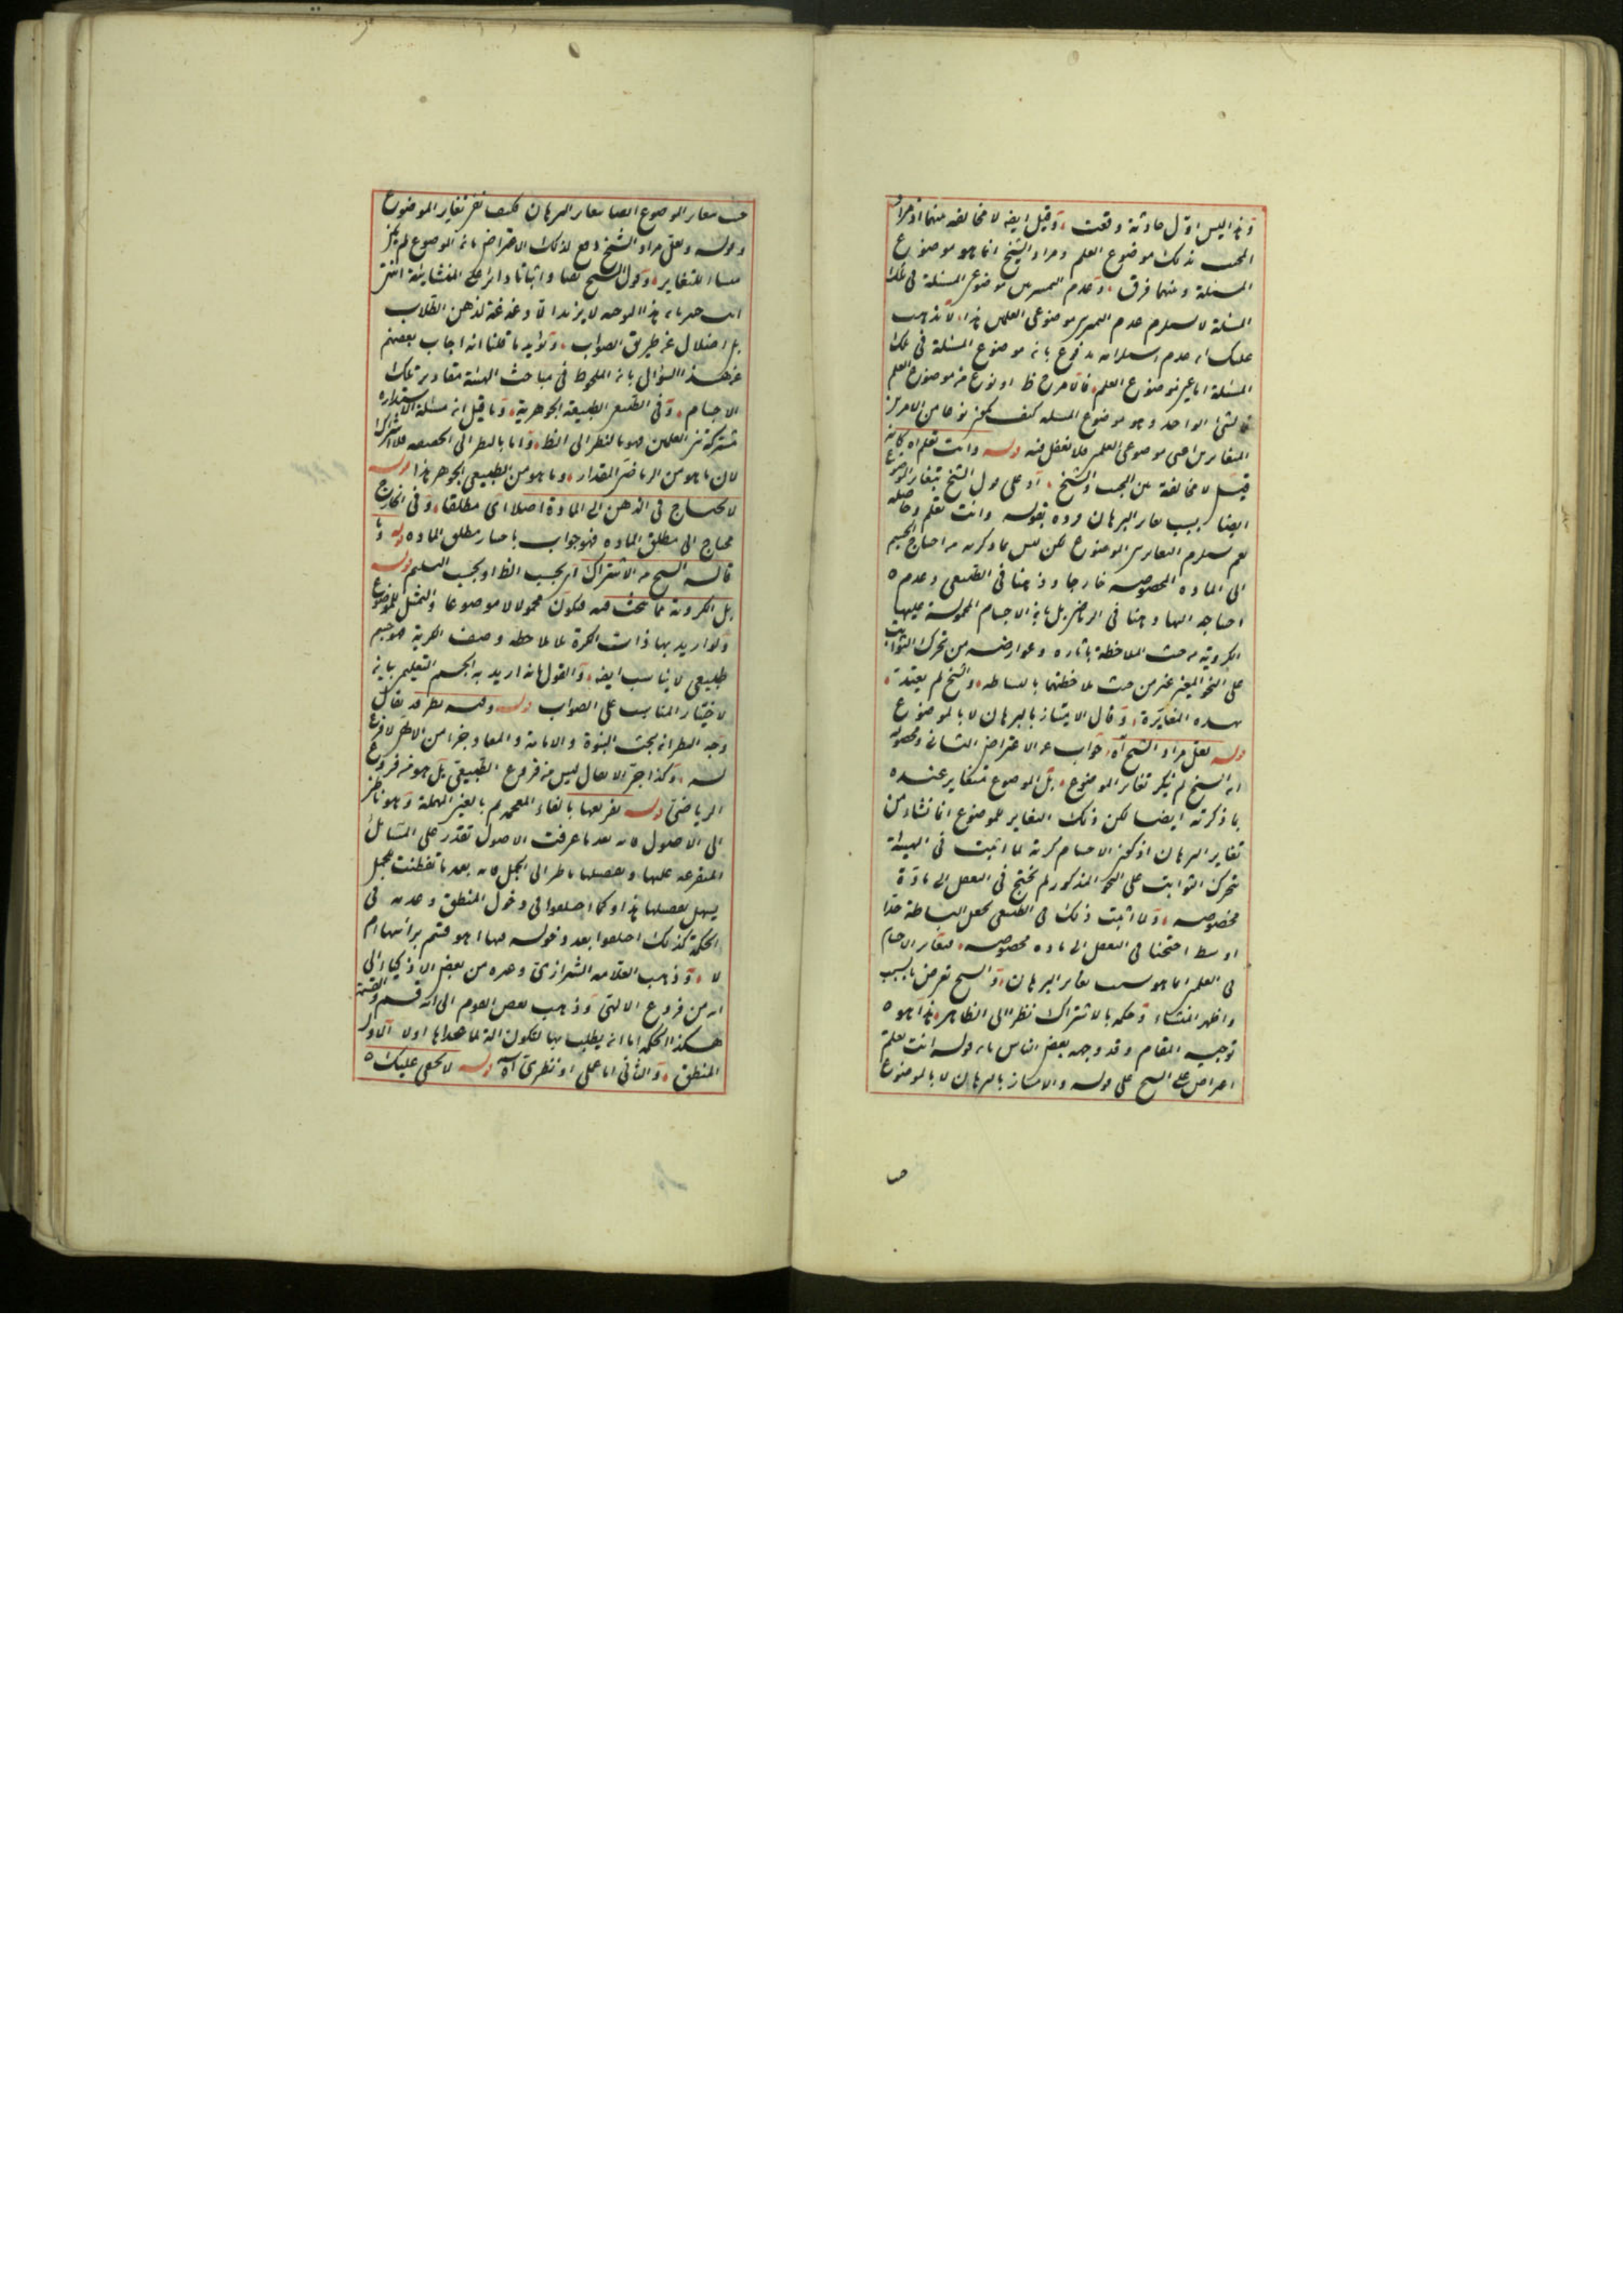 وهذا ليس اول حادثة وقعت، وقيل ايضه لا مخالفه منهما اذ مراد
المجيب بذلك موضوع العلم ومراد الشيخ انما هو موضوع
المسئلة ومنهما فرق، وعدم التميز بين موضوعى المسئلة فى تلك
المسئلة لا يستلزم عدم التميز بين موضوعى العلمين هذا، لا يذهب
عليك ان عدم استلزامه مدفوع بانه موضوع المسئلة فى تلك
المسئلة اما عين موضوع العلم، او نوع من موضوع العلم
فالشئ الواحد وهو موضوع المسئله كيف يكون نوعا من الامرين
المتغايرين اعنى موضوعى العلمين فلا تغفل فيه قوله وانت تعلم اه كانه
قيل لا مخالفة بين المجيب والشيخ، اذ على قول الشيخ بتغاير الموضوع
ايضا بسبب تغاير البرهان ورده بقوله وانت تعلم وحاصله
نعم يستلزم التغاير بين الموضوع لكن ليس ما ذكرته من احتياج الجسم
الى الماده المخصوصه خارجا وذهنا فى الطبيعى وعدم
احتياجه اليها ذهنا فى الرياضى بل بانه الاجسام المحمولة عليها
الكروية من حيث الملاحظة باثاره وعوارضه من تحرك الثوابت
على النحو المعين غير من حيث ملاحظتهما بالبساطه، والشيخ لم يعتد
بهذه المغايرة، وقال الامتياز بالبرهان لا بالموضوع
قوله لعل مراد الشيخ آه، جواب عن الاعتراض الثانى ومحصوله
ان الشيخ لم ينكر تغاير الموضوع، بل الموضوع متغاير عنده
بما ذكرته ايضا لكن ذلك التغاير للموضوع انما نشاء من
تغاير البرهان اذ كون الاجسام كرية لما اثبت فى الهيئة
بتحرك الثوابت على النحو المذكور لم يحتج فى التعقل الى مادة
مخصوصه، ولما اثبت ذلك فى الطبيعى بجعل البساطة حدا
اوسط احتجنا فى التعقل الى ماده مخصوصه، فتغاير الاجسام
فى العلمين انما هو بسبب تغاير البرهان، والشيخ تعرض بالسبب
واظهر المنشاء وحكم بالاشتراك نظرا الى الظاهر، هذا هو
توجيه المقام وقد وجه بعض الناس بان قوله انت تعلم
اعتراض على الشيخ على قوله والامتياز بالبرهان لا بالموضوع
حيث تغاير الموضوع ايضا بتغاير البرهان فكيف نفى تغاير الموضوع
وقوله ولعل مراد الشيخ دفع لذلك الاعتراض بانه الموضوع لم يكن
منشاء للتغاير، وقول الشيخ نفيا واثباتا دائر على المنشائية انتهى
انت خبير بان هذا التوجيه لا يزيد الا دغدغة لذهن الطلاب
بل اضلال عن طريق الصواب، ويؤيد ما قلنا انه اجاب بعضهم
عن هذا السؤال بانه الملحوظ فى مباحث الهيئة مقادير تلك
الاجسام، وفى الطبيعى الطبيعة الجوهرية، وما قيل انه مسئلة الاستداره
مشتركة بين العلمين فهو بالنظر الى الظ، واما بالنظر الى الحقيقه فلا اشتراك
لان ما هو من الرياضى المقدار، وما هو من الطبيعى الجوهر هذا قوله
لا يحتاج فى الذهن الى المادة اصلا اى مطلقا، وفى الخارج
محتاج الى مطلق الماده فهو جواب باختيار مطلق الماده قوله وما
قاله الشيخ من الاشتراك اى بحسب الظ او بحسب التسليم قوله
بل الكروية مما يبحث فيه فيكون محمولا لا موضوعا والتمثيل للموضوع
ولو اريد بها ذات الكرة بلا ملاحظه وصف الكرية فهو جسم
طبيعى لا يناسب ايضه، والقول بانه اريد به الجسم التعليمى يابنه
لاختيار المناسب على الصواب قوله وفيه نظر قد يقال
وجه النظر انه بحث النبوة والامامة والمعاد جزء من الالهى لا فرع
له، وكذا جر الاثقال ليس من فروع الطبيعى بل هو من فروع
الرياضى قوله تفريعها بالفاء المعجمه ثم بالعين المهملة وهو ناظر
الى الاصول لانه بعد ما عرفت الاصول تقدر على المسائل
المتفرعه عليها وتفصيلها ناظر الى المجمل لانه بعد ما تفطنت بمجمل
يسهل تفصيلها هذا وكما اختلفوا فى دخول المنطق وعدمه فى
الحكمة كذلك اختلفوا بعد دخوله فيها اهو قسم براسها ام
لا، وذهب العلامه الشيرازى وغيره من بعض الاذكياء الى
انه من فروع الالهى وذهب بعض القوم الى انه قسم والقسمة
هكذا الحكمه اما انه يطلب بها لتكون آلة لما عداها اولا الاول
المنطق، والثانى اما عملى او نظرى آه قوله لا يخفى عليك